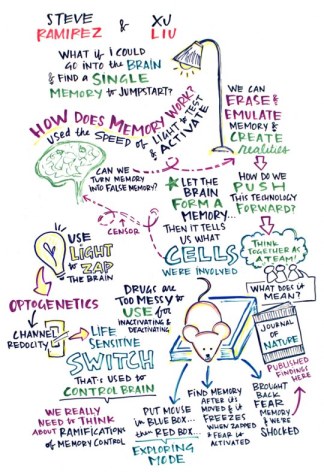 STEVE
RAMIREZ
&
XU
LIU
WHAT if I COULD
GO INTO the BRAIN
& FIND A SINGLE
MEMORY to JUMPSTART?
HOW DOES MEMORY WORK?
used the SPEED OF LIGHT to TEST
& ACTIVATE
WE CAN
ERASE &
EMULATE
MEMORY &
CREATE
realities
CAN WE
TURN MEMORY
INTO FALSE MEMORY?
CENSOR
LET THE
BRAIN
FORM A
MEMORY...
THEN IT TELLS
US WHAT
CELLS
WERE INVOLVED
HOW DO WE
PUSH
THIS TECHNOLOGY
FORWARD?
THINK
TOGETHER AS
A TEAM!
WHAT DOES IT
MEAN?
USE
LIGHT
to ZAP
THE BRAIN
OPTOGENETICS
CHANNEL
REDOCITY
LIFE
SENSITIVE
SWITCH
THAT'S USED to
CONTROL BRAIN
DRUGS ARE
TOO MESSY to
USE for
INACTIVATING &
DEACTIVATING
JOURNAL
OF
NATURE
PUBLISHED
FINDINGS
HERE
WE REALLY
NEED to THINK
ABOUT RAMIFICATIONS
OF MEMORY CONTROL
PUT MOUSE
in BLUE BOX...
then RED BOX...
EXPLORING
MODE
FIND MEMORY
AFTER ITS
MOVED & IT
FREEZES
WHEN ZAPPED
& FEAR is
ACTIVATED
BROUGHT
BACK
FEAR
MEMORY
& WERE
SHOCKED